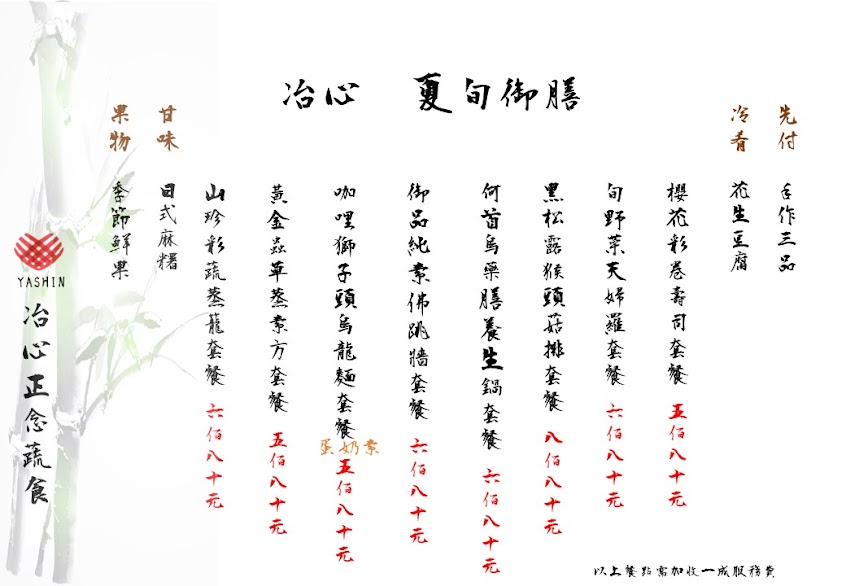 冶心 夏旬御膳
先付 手作三品
冷肴 花生豆腐
櫻花彩卷壽司套餐 五佰八十元
旬野菜天婦羅套餐 六佰八十元
黑松露猴頭菇排套餐 八佰八十元
何首烏藥膳養生鍋套餐 六佰八十元
御品純素佛跳牆套餐 六佰八十元
咖哩獅子頭烏龍麵套餐 蛋奶素 五佰八十元
黃金蟲草蒸素方套餐 五佰八十元
山珍彩蔬蒸籠套餐 六佰八十元
甘味 日式麻糬
果物 季節鮮果
YASHIN
冶心正念蔬食
以上餐點需加收一成服務費